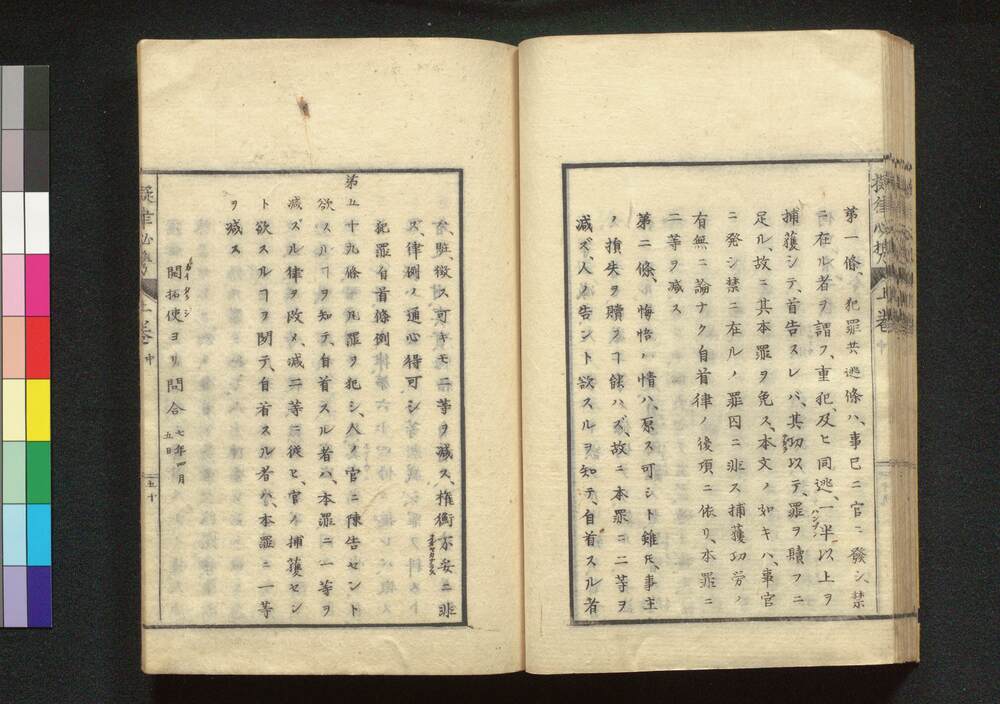 第一條、犯罪共逃條ハ、事已ニ官ニ發シ、禁
ニ在ル者ヲ謂フ、重犯、及ヒ同逃、一半以上ヲ
捕獲シテ、首告スレバ、其功以テ、罪ヲ贖フニ
足ル、故ニ其本罪ヲ免ス、本文ノ如キハ、事官
ニ発シ禁ニ在ルノ罪囚ニ非ス捕獲功労ノ
有無ニ論ナク自首律ノ後項ニ依リ、本罪ニ
二等ヲ減ス
第二條、悔悟ハ情ハ原ス可シト雖𪜈、事主
ノ損失ヲ贖フヿ能ハズ、故ニ本罪ニ二等ヲ
減ズ、人ノ告ント欲スルヲ知テ、自首スル者
ハ、贓、徴ス可キモ二等ヲ減ス、権衡不妥ニ非
ズ、律例ノ通心得可シ
犯罪自首條例
第五十九條 凡罪ヲ犯シ、人ノ官ニ陳告セント
欲スルヿヲ知テ、自首スル者ハ、本罪ニ一等ヲ
減ズル律ヲ改メ、減二等ニ従ヒ、官ノ捕獲セン
ト欲スルヿヲ聞テ、自首スル者ハ、本罪ニ一等
ヲ減ス
開拓使ヨリ問合 七年四月五日
上巻
五十